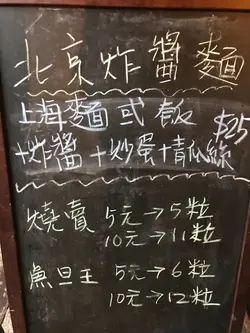 北京炸醬麵
上海麵或飯 $25
+炸醬+炒蛋+青瓜絲
燒賣 5元→5粒
10元→11粒
魚旦王 5元→6粒
10元→12粒